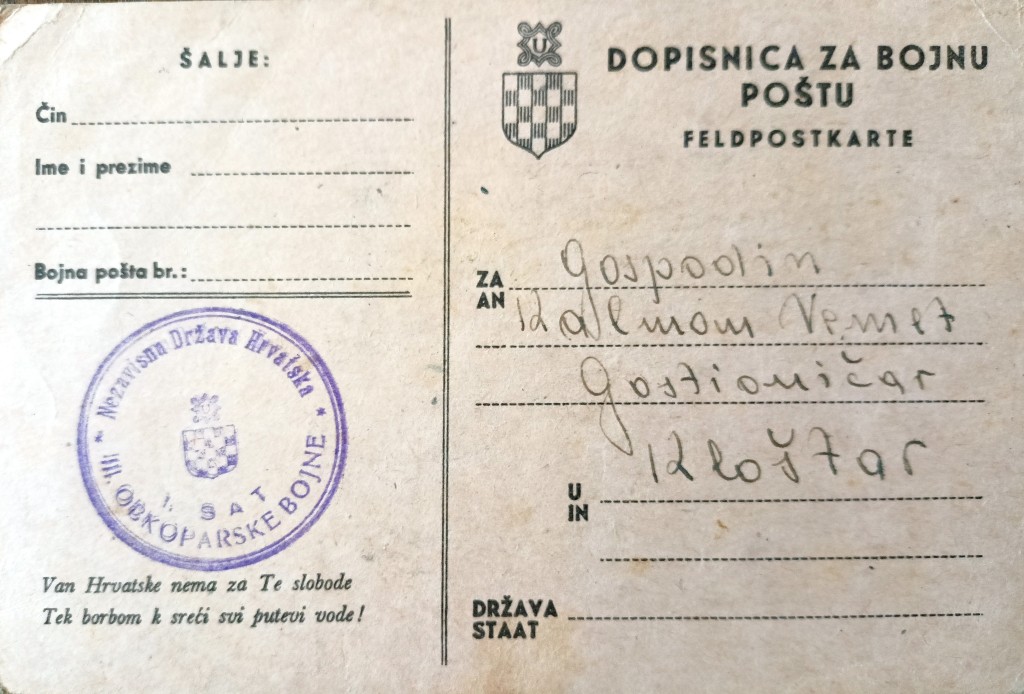 ŠALJE:
Čin
Ime i prezime
Bojna pošta br.:
* Nezavisna Država Hrvatska *
U
I. SAT
III. OBKOPARSKE BOJNE
Van Hrvatske nema za Te slobode
Tek borbom k sreći svi putevi vode!
U
DOPISNICA ZA BOJNU
POŠTU
FELDPOSTKARTE
ZA Gospodin
AN Kalmom Nemet
Gostioničar
Kloštar
U
IN
DRŽAVA
STAAT